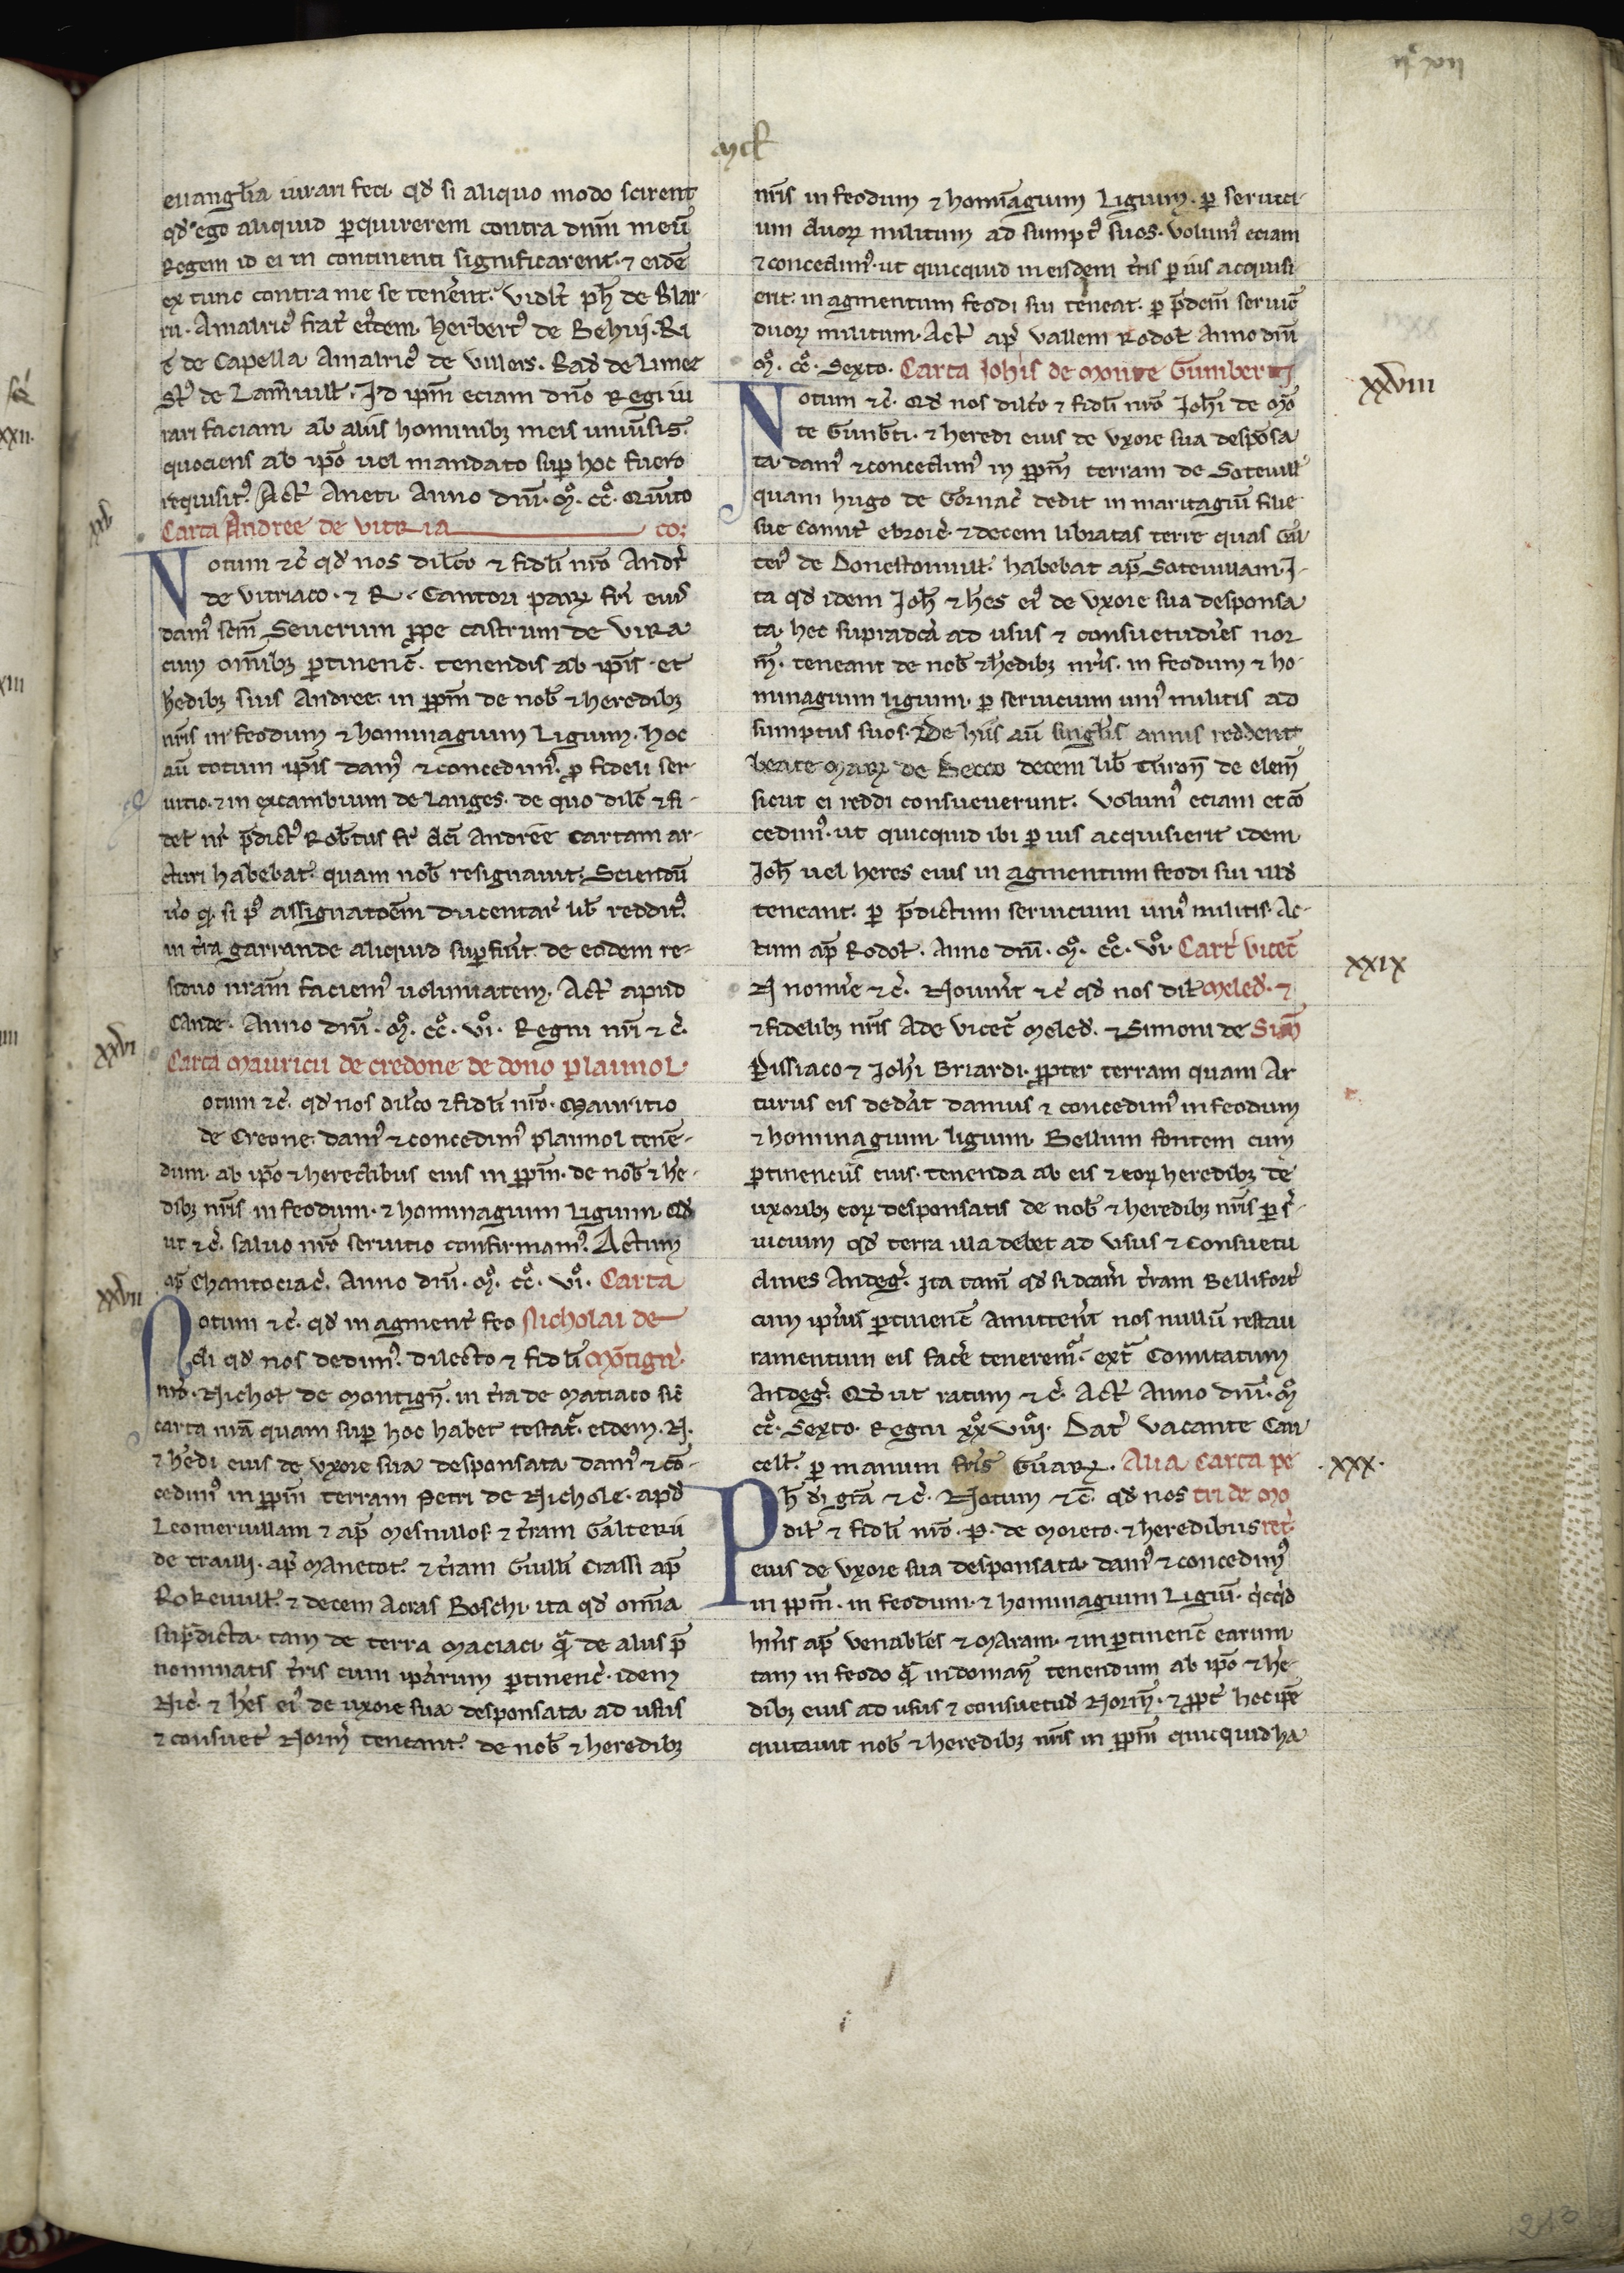 mck
euangl̄ia iurari feci qd̓ si aliquo modo scirent
qd̓ ego aliquid ꝑquirerem contra dn̄m meū
Regem id ei in continenti significarent. ⁊ eidē
ex tunc contra me se tener̄ent. Vidl̓t ph̄ de Blar-
ru. Amalric᷒ frat̓ ei᷒dem. herbert᷒ de Behuj. Ri
c̓ de Capella Amalric᷒ de Villers. Rad̓ de Limet
St᷒ de Lam̄uill̓. Id ip̄m eciam dn̄o Regi iu
rari faciam ab aliis hominibꝫ meis uniūsis.
quociens ab ip̄o uel mandato suꝑ hoc fuero
requisit᷒. Act̓ Aneti Anno dn̄i. M̊. cc̊. Quinto
Carta Andree de vitria co:
XXV
Notum ⁊c̓ qd̓ nos dil̄co ⁊ fidl̓i nr̄o Andr̓
de vitriaco. ⁊ R. Cantori paꝝ fr̄i eius̓
dam᷒ sc̄m Seuerum ꝓpe castrum de vira
cum om̄ibꝫ ꝑtinenc̄. tenendis ab ip̄is. et
h̄edibꝫ suis Andree. in ꝑpm̄ de nob̓ ⁊ heredibꝫ
nr̄is in feodum ⁊ hominagium Ligium. Hoc
aū totum ip̄is dam᷒ ⁊ concedim᷒. ꝓ fideli ser-
uitio. ⁊ in excambium de Langes. de quo dilc̄ ⁊ fi-
del̓ nr̓ p̄dict᷒ Rob̓tus fr̓ dc̄i Andree Cartam ar-
cturi habebat. quam nob̓ resignauit. Sciendū
u̓o qꝫ si p᷒ assignatōem ducentar̓ lib̓ reddit᷒
in t̓ra garrande aliquid suꝑfūit de eodem re-
siduo nr̄am faciem᷒ uoluntatem. Act̓ apud
Cande. Anno dn̄i. M̊. cc̊. vı̊. Regni nr̄i ⁊ c̓.
XXVI
Carta mauricii de credone de dono plaunol
otum ⁊c̓. qd̓ nos dil̄co ⁊ fidl̓i nr̄o. Mauritio
de Creone. dam᷒ ⁊ concedim᷒ plaunol tenē-
dum. ab ip̄o ⁊ heredibus eius in ꝑpm̄. de nob̓ ⁊ he-
dibꝫ nr̄is in feodum. ⁊ hominagium Ligium. Qd̓
ut ⁊c̓. saluo nr̄o seruitio confirmam᷒. Actum
ap̄ Chantociac̓. Anno dn̄i. M̊. cc̊. vı̊. Carta
XXVII
Notum ⁊c̓. qd̓ in agment̓ feo Nicholai de
di qd̓ nos dedim᷒. dilecto ⁊ fidl̓i Mōtign̓.
nr̄o. Nichol̓ de Montign̄. in t̓ra de Matiaco sic̓
carta nr̄a quam suꝑ hoc habet testat̓. eidem. N.
⁊ h̄edi eius de vxore sua desponsata dam᷒ ⁊ cō-
cedim᷒ in ꝑpm̄ terram Petri de Nichole. apd̓
Leomeruillam ⁊ ap̄ Mesnillos. ⁊ t̓ram Galterii
de trailli. ap̄ Manetot. ⁊ t̓ram Guill̓i Crassi ap̄
Rokeuill̓. ⁊ decem Acras Boschi. ita qd̓ om̄ia
sup̓dicta. tam de terra maciaci. qᷓ de aliis p̄
nominatis t̓ris cum ip̄arum ꝑtinenc̓. idem
Nic̓. ⁊ h̓es ei᷒ de vxore sua desponsata ad usus
⁊ consuet̓ Norm̄ teneant. de nob̓ ⁊ heredibꝫ
nr̄is in feodum ⁊ homīagium Ligium. ꝑ seruici-
um duoꝝ militum ad sumpt᷒ suos. Volum᷒ eciam
⁊ concedim᷒. ut quicquid in eisdem t̓ris ꝑ ius acquisi
erit. in agmentum feodi sui teneat. ꝑ p̄dc̄m seruic̄
duoꝝ militum. Act̓ ap̄ Vallem Rodol̓ Anno dn̄i
M̊. cc̊. Sexto. Carta Joh̓is de monte Gunberti
XXVIII
Notum ⁊c̓. Qd̓ nos dil̄co ⁊ fidl̓i nr̄o Joh̓i de Mō
te Gunb̓ti. ⁊ heredi eius de vxore sua desponsa
ta. dam᷒ ⁊ concedim᷒ in ꝑpm̄ terram de Soteuill̓
quam hugo de Gornac̓ dedit in maritagiū filie
sue Comit̓ ebroic̓. ⁊ decem libratas terre quas Gal
ter᷒ de Donestonuill̓. habebat ap̄ Soteuillam. I-
ta qd̓ idem Joh̄ ⁊ h̓es ei᷒ de vxore sua desponsa
ta. hec supradc̄a ad usus ⁊ consuetudīes nor
m̄. teneant de nob̓ ⁊ h̄edibꝫ nr̄is. in feodum ⁊ ho-
minagium ligium. ꝑ seruicium uni᷒ militis ad
sumptus suos. De hiis aū singl̓is annis reddent
beate Marꝫ de Becco decem lib̓ Turon̄ de elem̄
sicut ei reddi consueuerunt. Volum᷒ eciam et cō
cedim᷒. ut quicquid ibi ꝑ ius acquisierit idem
Joh̄ uel heres eius in agmentum feodi sui illd̓
teneant. ꝑ p̄dictum seruicium uni᷒ militis. Ac-
tum ap̄ Rodol̓. Anno dn̄i. M̊. cc̊. vı̊. Cart̓ vicec̄
XXIX
N nomīe ⁊c̓. Nouīnt ⁊c̓ qd̓ nos dil̓ meled̓. ⁊
⁊ fidelibꝫ nr̄is Ade vicec̄ meled̓. ⁊ Simoni de Sim̄
Pissiaco ⁊ Joh̓i Briardi. ꝓpter terram quam Ar
turus eis ded̓at damus ⁊ concedim᷒ in feodum
⁊ hominagium ligium. Bellum fontem cum
ꝑtinenciis eius. tenenda ab eis ⁊ eoꝝ heredibꝫ de
uxoribꝫ eoꝝ desponsatis de nob̓ ⁊ heredibꝫ nr̄is ꝑ s̓-
uicium qd̓ terra illa debet ad usus ⁊ Consuetu
dines Andeg̓. Ita tam̄ qd̓ si dc̄am t̓ram Bellifort̓
cum ip̄ius ꝑtinenc̄ amitter̄et nos nullū restau
ramentum eis fac̓e tenerem᷒. ext̓ Comitatum
Andeg̓. Qd̓ ut ratum ⁊c̓. Act̓ Anno dn̄i. M̊
cc̊. Sexto. Regni xx̊ vııı̊. Dat̓ vacante Can
cell̓. ꝑ manum fr̄is Guarꝫ. Alia Carta pe
XXX.
Ph̄ di gr̄a ⁊c̓. Notum ⁊c̓. qd̓ nos tri de mo
dil̓ ⁊ fidl̓i nr̄o. P. de moreto. ⁊ heredibus ret̓.
eius de vxore sua desponsata. dam᷒ ⁊ concedim᷒
in ꝑpm̄. in feodum. ⁊ hominagium Ligiū. q̓cq̓d
hm̓s ap̄ venabl̓es ⁊ Maram. ⁊ in ꝑtinenc̄ earum
tam in feodo qᷓ in doman̄ tenendum ab ip̄o ⁊ he-
dibꝫ eius ad usus ⁊ consuetud̓ Norm̄. ⁊ ꝓpt̓ hoc ip̄e
quitauit nob̓ ⁊ heredibꝫ nr̄is in ꝑpm̄ quicquid ha
213